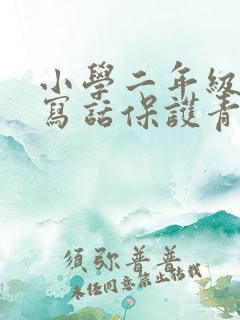 小學二年級
寫話保護青
須弥普普
未经同意禁止转载